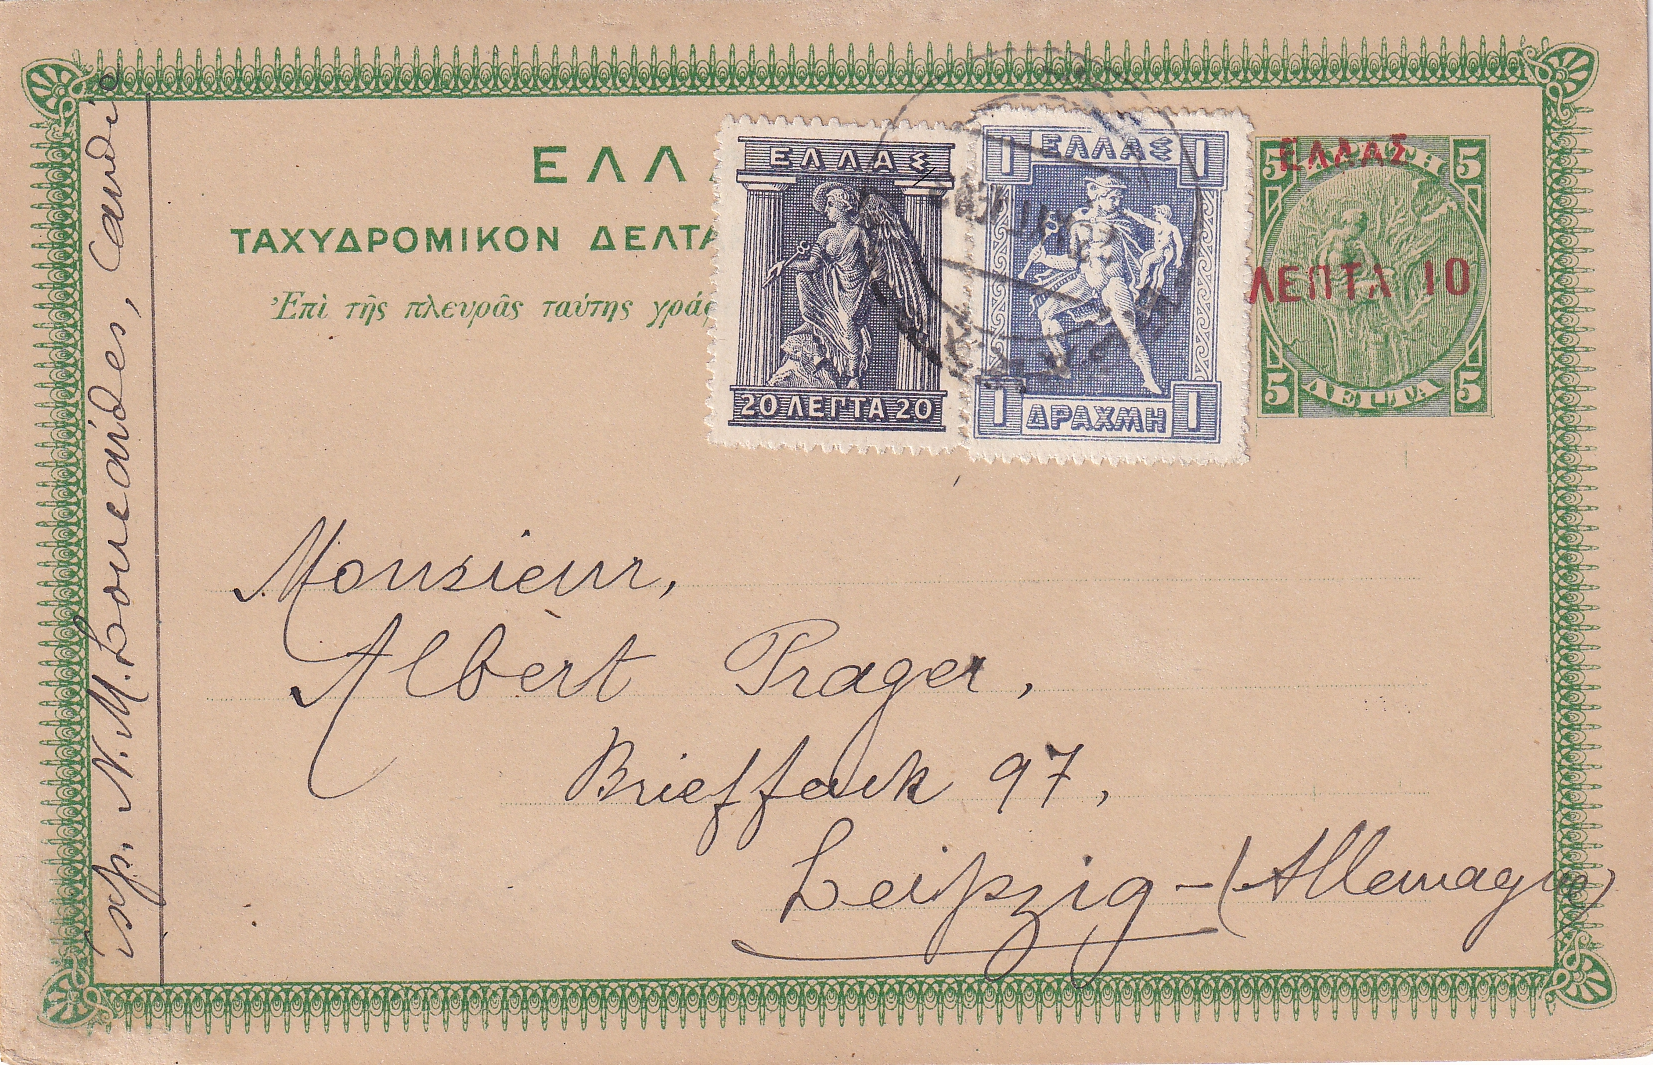 ΕΛΛ
ΤΑΧΥΔΡΟΜΙΚΟΝ ΔΕΛΤΑ
Ἐπὶ τῆς πλευρᾶς ταύτης γρά
ΕΛΛΑΣ
20 ΛΕΠΤΑ 20
1 ΕΛΛΑΣ 1
1 ΔΡΑΧΜΗ 1
5 5
ΕΛΛΑΣ
ΛΕΠΤΑ 10
5 ΛΕΠΤΑ 5
Monsieur,
Albèrt Prager,
Brieffack 97,
Leipzig - (Allemagne)
Exp. N. M. Candie